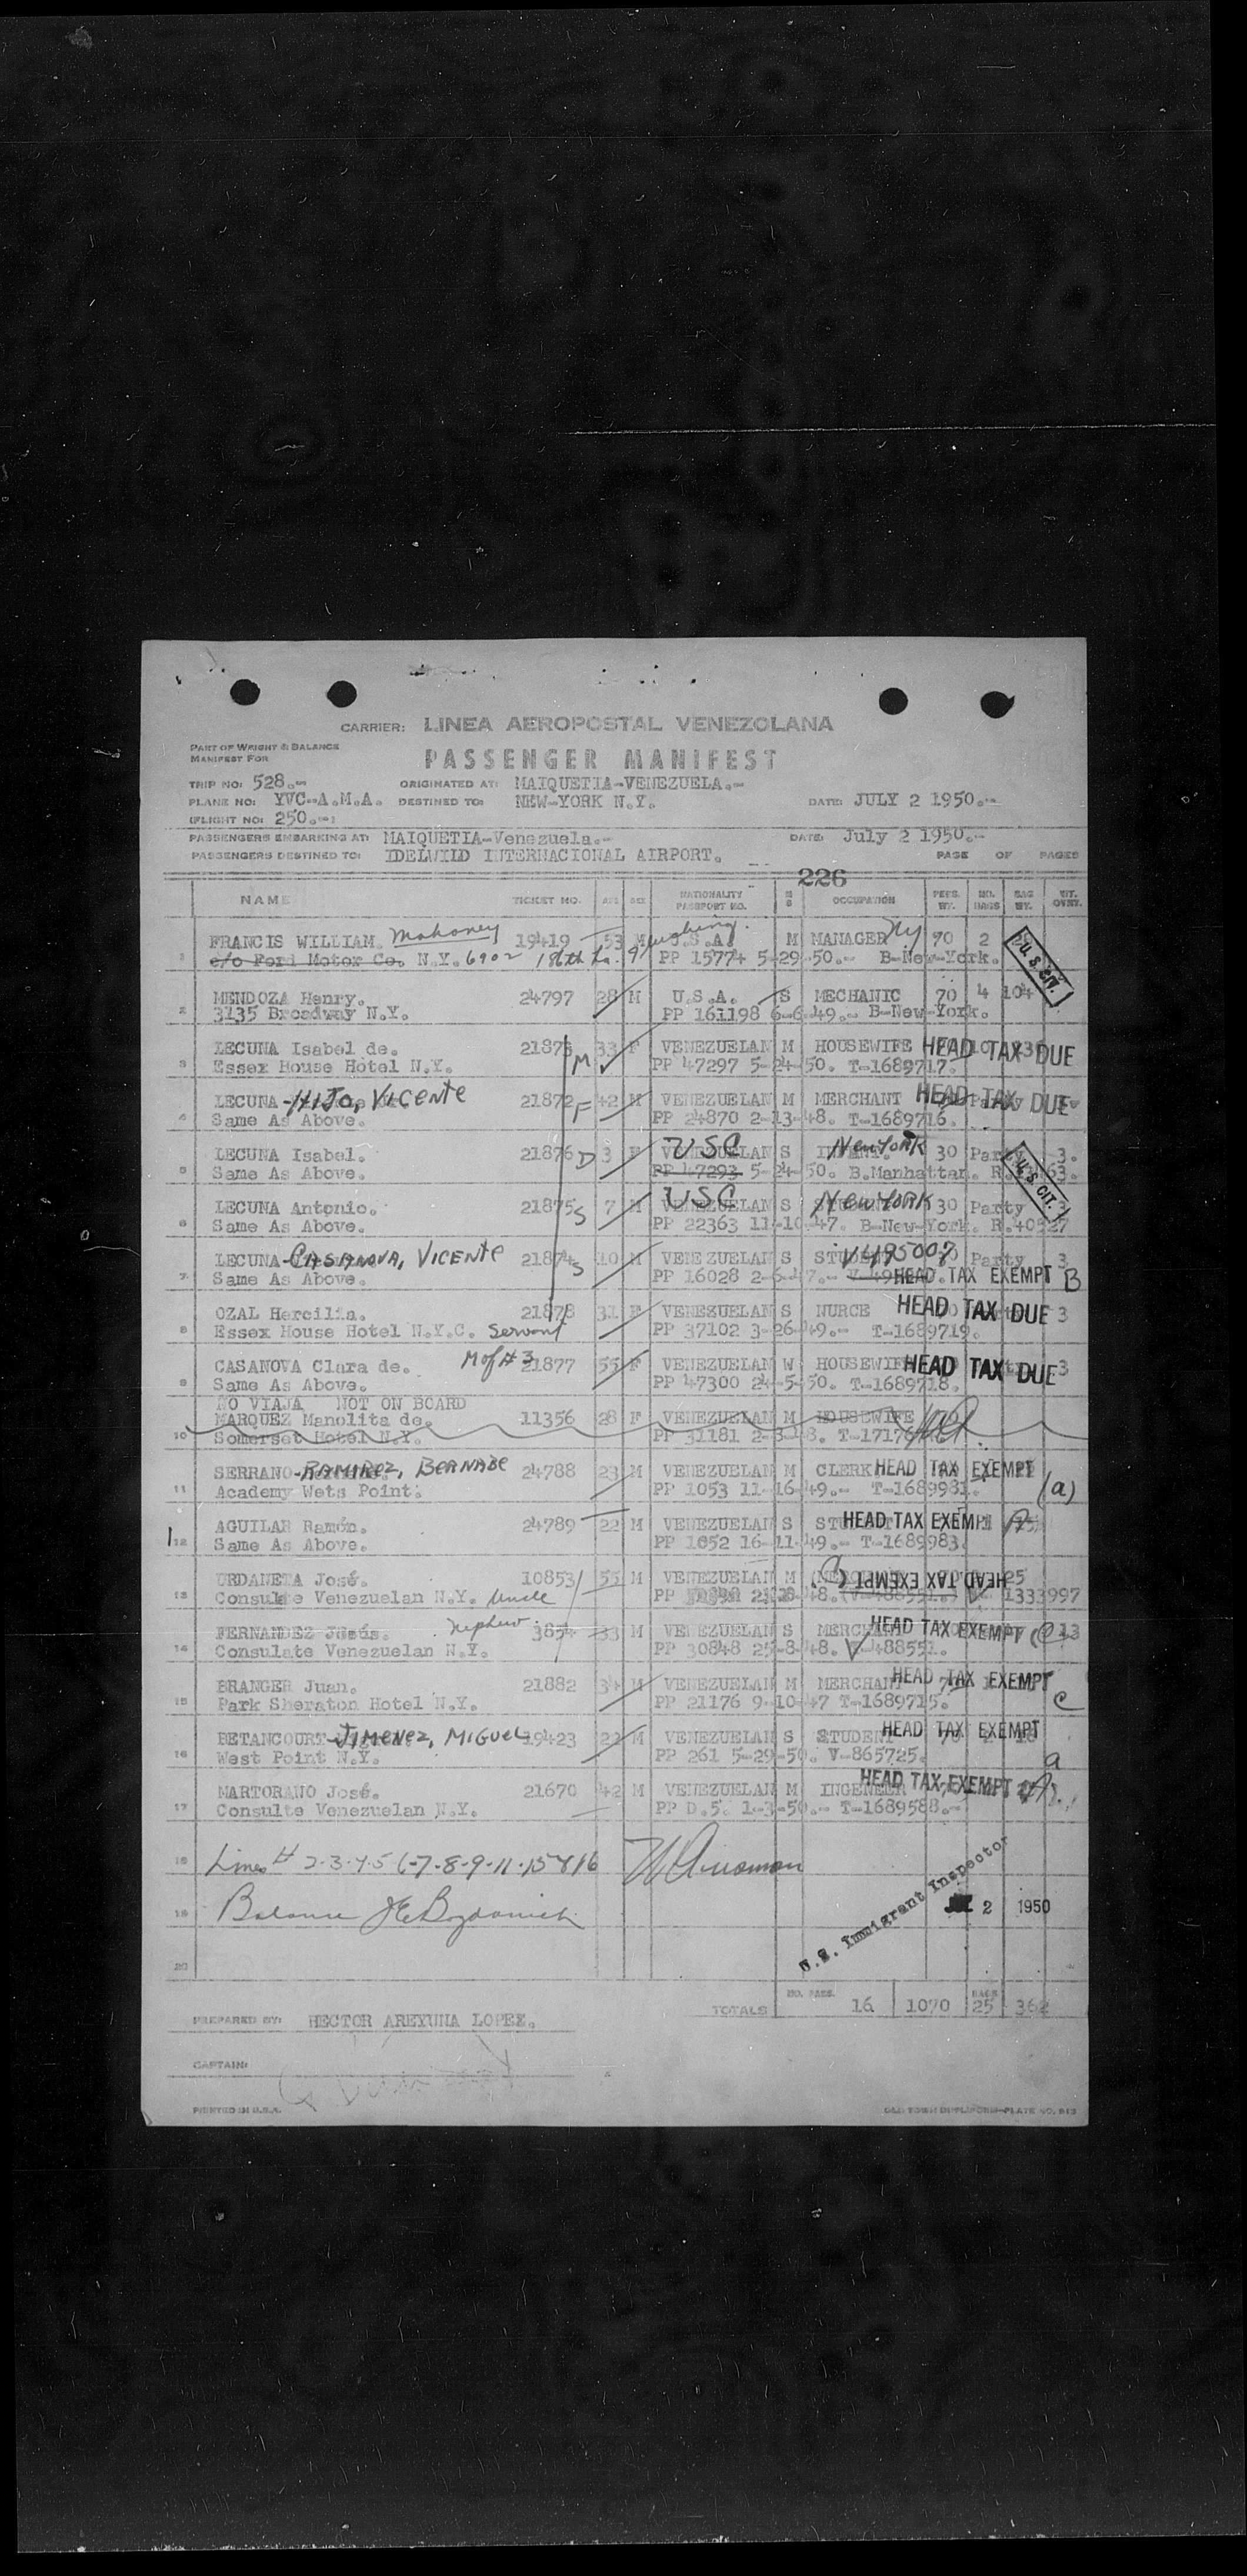 CARRIER: LINEA AEROPOSTAL VENEZOLANA
PART OF WEIGHT & BALANCE
MANIFEST FOR
PASSENGER MANIFEST
TRIP NO: 528.- ORIGINATED AT: MAIQUETIA-VENEZUELA.-
PLANE NO: YVC-A.M.A. DESTINED TO: NEW-YORK N.Y. DATE: JULY 2 1950.-
(FLIGHT NO: 250.-)
PASSENGERS EMBARKING AT: MAIQUETIA-Venezuela.- DATE: July 2 1950.-
PASSENGERS DESTINED TO: IDELWILD INTERNACIONAL AIRPORT. PAGE OF PAGES
226
NAME TICKET NO. AGE SEX NATIONALITY PASSPORT NO. M S OCCUPATION PERS. WT. NO. BAGS BAG WT. WT. OVWT.
1 FRANCIS WILLIAM. Mahoney 19419 53 M U.S.A. M MANAGER NY 70 2
c/o Ford Motor Co. N.Y. 6902 186th La. Flushing. PP 15774 5-29-50.- B-New-York. U.S. CIT.
2 MENDOZA Henry. 24797 28 M U.S.A. S MECHANIC 70 4 104
3135 Broadway N.Y. PP 161198 6-6-49.- B-New-York.
3 LECUNA Isabel de. 21873 M 33 F VENEZUELAN M HOUSEWIFE HEAD TAX DUE
Essex House Hotel N.Y. PP 47297 5-24-50. T-1689717.
4 LECUNA-HIJO, VICENTE 21872 F 42 M VENEZUELAN M MERCHANT HEAD TAX DUE
Same As Above. PP 24870 2-13-48. T-1689716.
5 LECUNA Isabel. 21876 D 3 F VENEZUELAN USC S New York 30 Party 3.
Same As Above. PP 47293 5-24-50. B.Manhattan. U.S. CIT.
6 LECUNA Antonio. 21875 S 7 M VENEZUELAN USC S STUDENT New YORK 30 Party
Same As Above. PP 22363 11-10-47. B-New-York. R.40527
7 LECUNA-CASANOVA, VICENTE 21874 S 10 M VENEZUELAN S STUDENT V495007 Party 3
Same As Above. PP 16028 2-6-47.- HEAD TAX EXEMPT B
8 OZAL Hercilia. 21878 31 F VENEZUELAN S NURCE HEAD TAX DUE 3
Essex House Hotel N.Y.C. Servant PP 37102 3-26-49.- T-1689719.
9 CASANOVA Clara de. M of #3 21877 55 F VENEZUELAN W HOUSEWIFE HEAD TAX DUE 3
Same As Above. PP 47300 24-5-50. T-1689718.
NO VIAJA NOT ON BOARD
10 MARQUEZ Manolita de. 11356 28 F VENEZUELAN M HOUSEWIFE
Somerset Hotel N.Y. PP 31181 2-3-48.
11 SERRANO-RAMIREZ, BERNABE 24788 23 M VENEZUELAN M CLERK HEAD TAX EXEMPT
Academy Wets Point. PP 1053 11-16-49.- T-1689981. (a)
12 AGUILAR Ramón. 24789 22 M VENEZUELAN S STUDENT HEAD TAX EXEMPT
Same As Above. PP 1052 16-11-49.- T-1689983.
13 URDANETA José. 10853 55 M VENEZUELAN M HEAD TAX EXEMPT 25
Consulte Venezuelan N.Y. Uncle 1333997
14 FERNANDEZ Jesús. nephew 3854 33 M VENEZUELAN S MERCHANT HEAD TAX EXEMPT 13
Consulate Venezuelan N.Y. PP 30848 25-8-48. V-488551.
15 BRANGER Juan. 21882 34 M VENEZUELAN M MERCHANT HEAD TAX EXEMPT
Park Sheraton Hotel N.Y. PP 21176 9-10-47 T-1689715. C
16 BETANCOURT-JIMENEZ, MIGUEL 19423 22 M VENEZUELAN S STUDENT HEAD TAX EXEMPT
West Point N.Y. PP 261 5-29-50. V-865725. a
17 MARTORANO José. 21670 42 M VENEZUELAN M INGENEER HEAD TAX EXEMPT
Consulte Venezuelan N.Y. PP D.5. 1-3-50.- T-1689588.-
18 Lines # 2-3-4-5 6-7-8-9-11-15 & 16
19 Balance J E Bogdanich
U.S. Immigrant Inspector
JUL 2 1950
20
TOTALS NO. PASS. 16 1070 BAGS 25 362
PREPARED BY: HECTOR AREYUNA LOPEZ.
CAPTAIN:
PRINTED IN U.S.A.